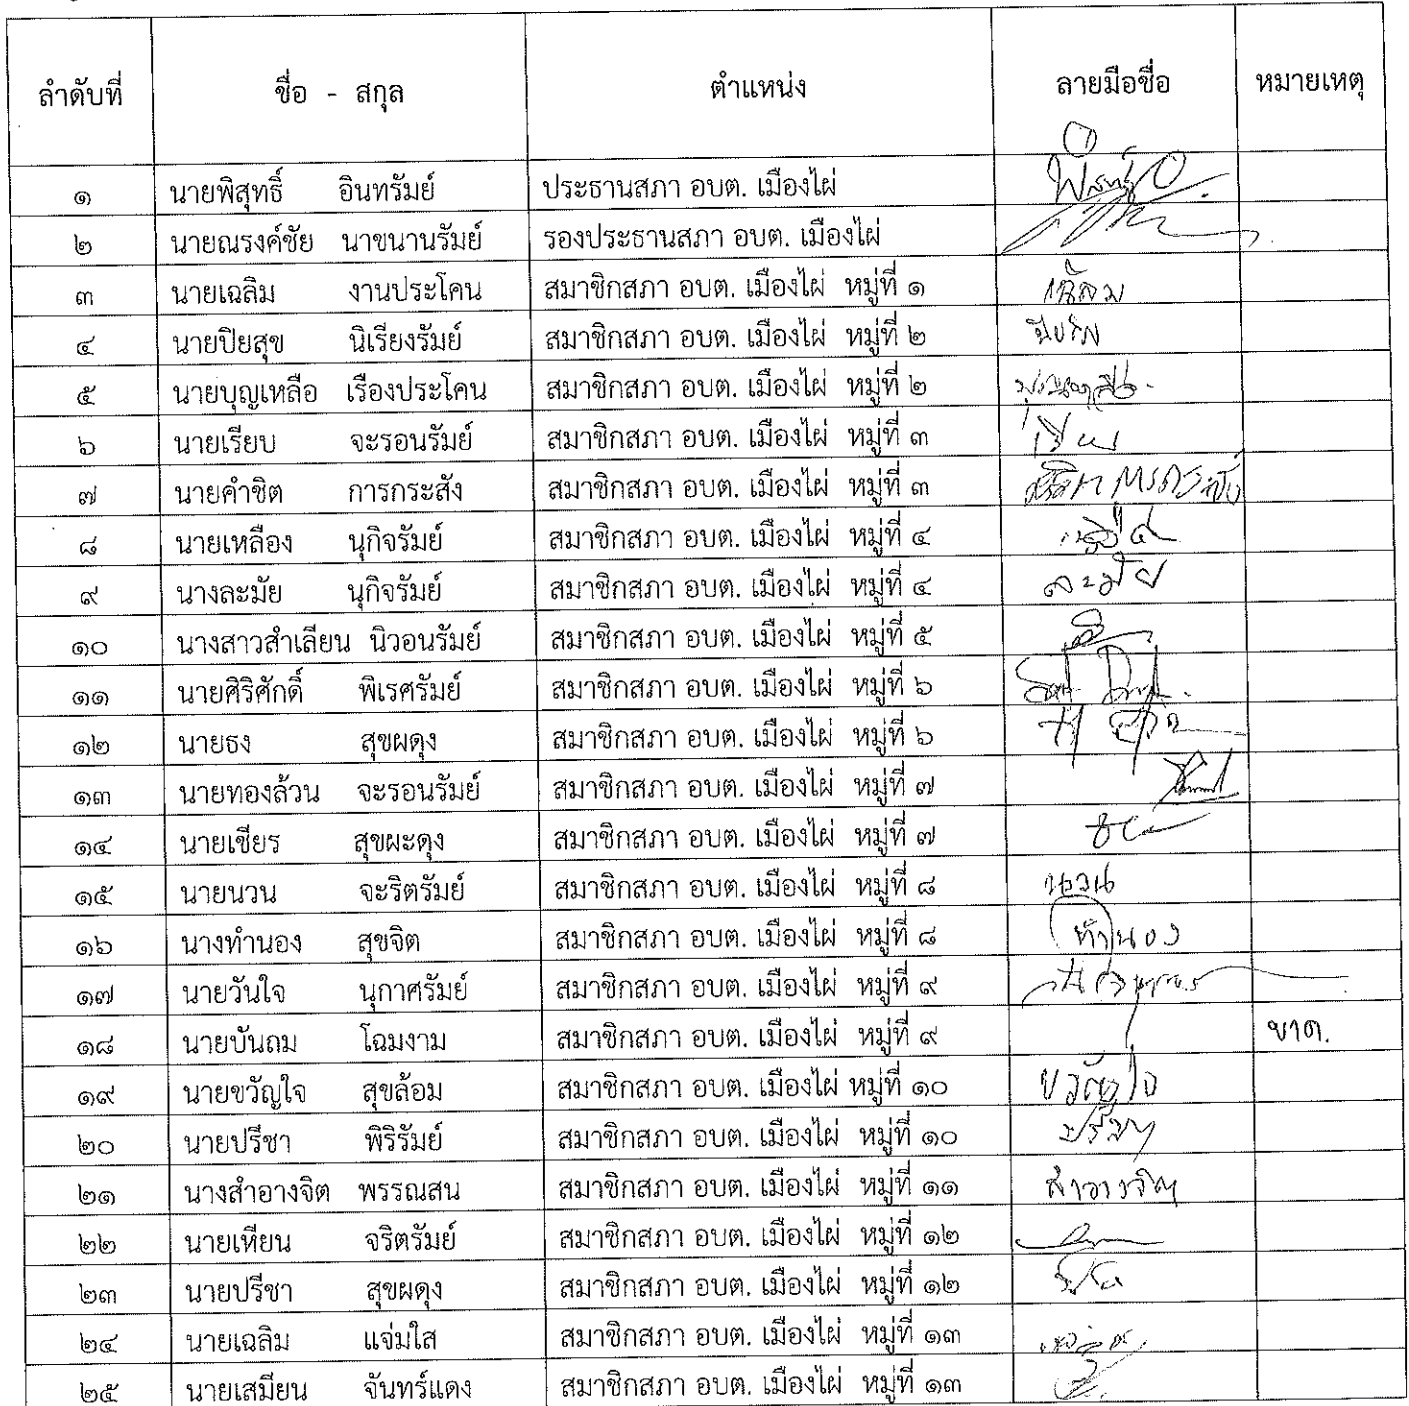 ลำดับที่ ชื่อ - สกุล ตำแหน่ง ลายมือชื่อ หมายเหตุ
๑ นายพิสุทธิ์ อินทรัมย์ ประธานสภา อบต. เมืองไผ่
๒ นายณรงค์ชัย นาขนานรัมย์ รองประธานสภา อบต. เมืองไผ่
๓ นายเฉลิม งานประโคน สมาชิกสภา อบต. เมืองไผ่ หมู่ที่ ๑ เฉลิม
๔ นายปิยสุข นิเรียงรัมย์ สมาชิกสภา อบต. เมืองไผ่ หมู่ที่ ๒
๕ นายบุญเหลือ เรืองประโคน สมาชิกสภา อบต. เมืองไผ่ หมู่ที่ ๒
๖ นายเรียบ จะรอนรัมย์ สมาชิกสภา อบต. เมืองไผ่ หมู่ที่ ๓
๗ นายคำชิต การกระสัง สมาชิกสภา อบต. เมืองไผ่ หมู่ที่ ๓
๘ นายเหลือง นุกิจรัมย์ สมาชิกสภา อบต. เมืองไผ่ หมู่ที่ ๔
๙ นางละมัย นุกิจรัมย์ สมาชิกสภา อบต. เมืองไผ่ หมู่ที่ ๔ ละมัย
๑๐ นางสาวสำเลียน นิวอนรัมย์ สมาชิกสภา อบต. เมืองไผ่ หมู่ที่ ๕
๑๑ นายศิริศักดิ์ พิเรศรัมย์ สมาชิกสภา อบต. เมืองไผ่ หมู่ที่ ๖
๑๒ นายธง สุขผดุง สมาชิกสภา อบต. เมืองไผ่ หมู่ที่ ๖
๑๓ นายทองล้วน จะรอนรัมย์ สมาชิกสภา อบต. เมืองไผ่ หมู่ที่ ๗
๑๔ นายเชียร สุขผะดุง สมาชิกสภา อบต. เมืองไผ่ หมู่ที่ ๗
๑๕ นายนวน จะริตรัมย์ สมาชิกสภา อบต. เมืองไผ่ หมู่ที่ ๘ นวน
๑๖ นางทำนอง สุขจิต สมาชิกสภา อบต. เมืองไผ่ หมู่ที่ ๘ ทำนอง
๑๗ นายวันใจ นุกาศรัมย์ สมาชิกสภา อบต. เมืองไผ่ หมู่ที่ ๙
๑๘ นายบันถม โฉมงาม สมาชิกสภา อบต. เมืองไผ่ หมู่ที่ ๙ ขาด.
๑๙ นายขวัญใจ สุขล้อม สมาชิกสภา อบต. เมืองไผ่ หมู่ที่ ๑๐ ขวัญใจ
๒๐ นายปรีชา พิริรัมย์ สมาชิกสภา อบต. เมืองไผ่ หมู่ที่ ๑๐ ปรีชา
๒๑ นางสำอางจิต พรรณสน สมาชิกสภา อบต. เมืองไผ่ หมู่ที่ ๑๑ สำอางจิต
๒๒ นายเหียน จริตรัมย์ สมาชิกสภา อบต. เมืองไผ่ หมู่ที่ ๑๒
๒๓ นายปรีชา สุขผดุง สมาชิกสภา อบต. เมืองไผ่ หมู่ที่ ๑๒
๒๔ นายเฉลิม แจ่มใส สมาชิกสภา อบต. เมืองไผ่ หมู่ที่ ๑๓
๒๕ นายเสมียน จันทร์แดง สมาชิกสภา อบต. เมืองไผ่ หมู่ที่ ๑๓